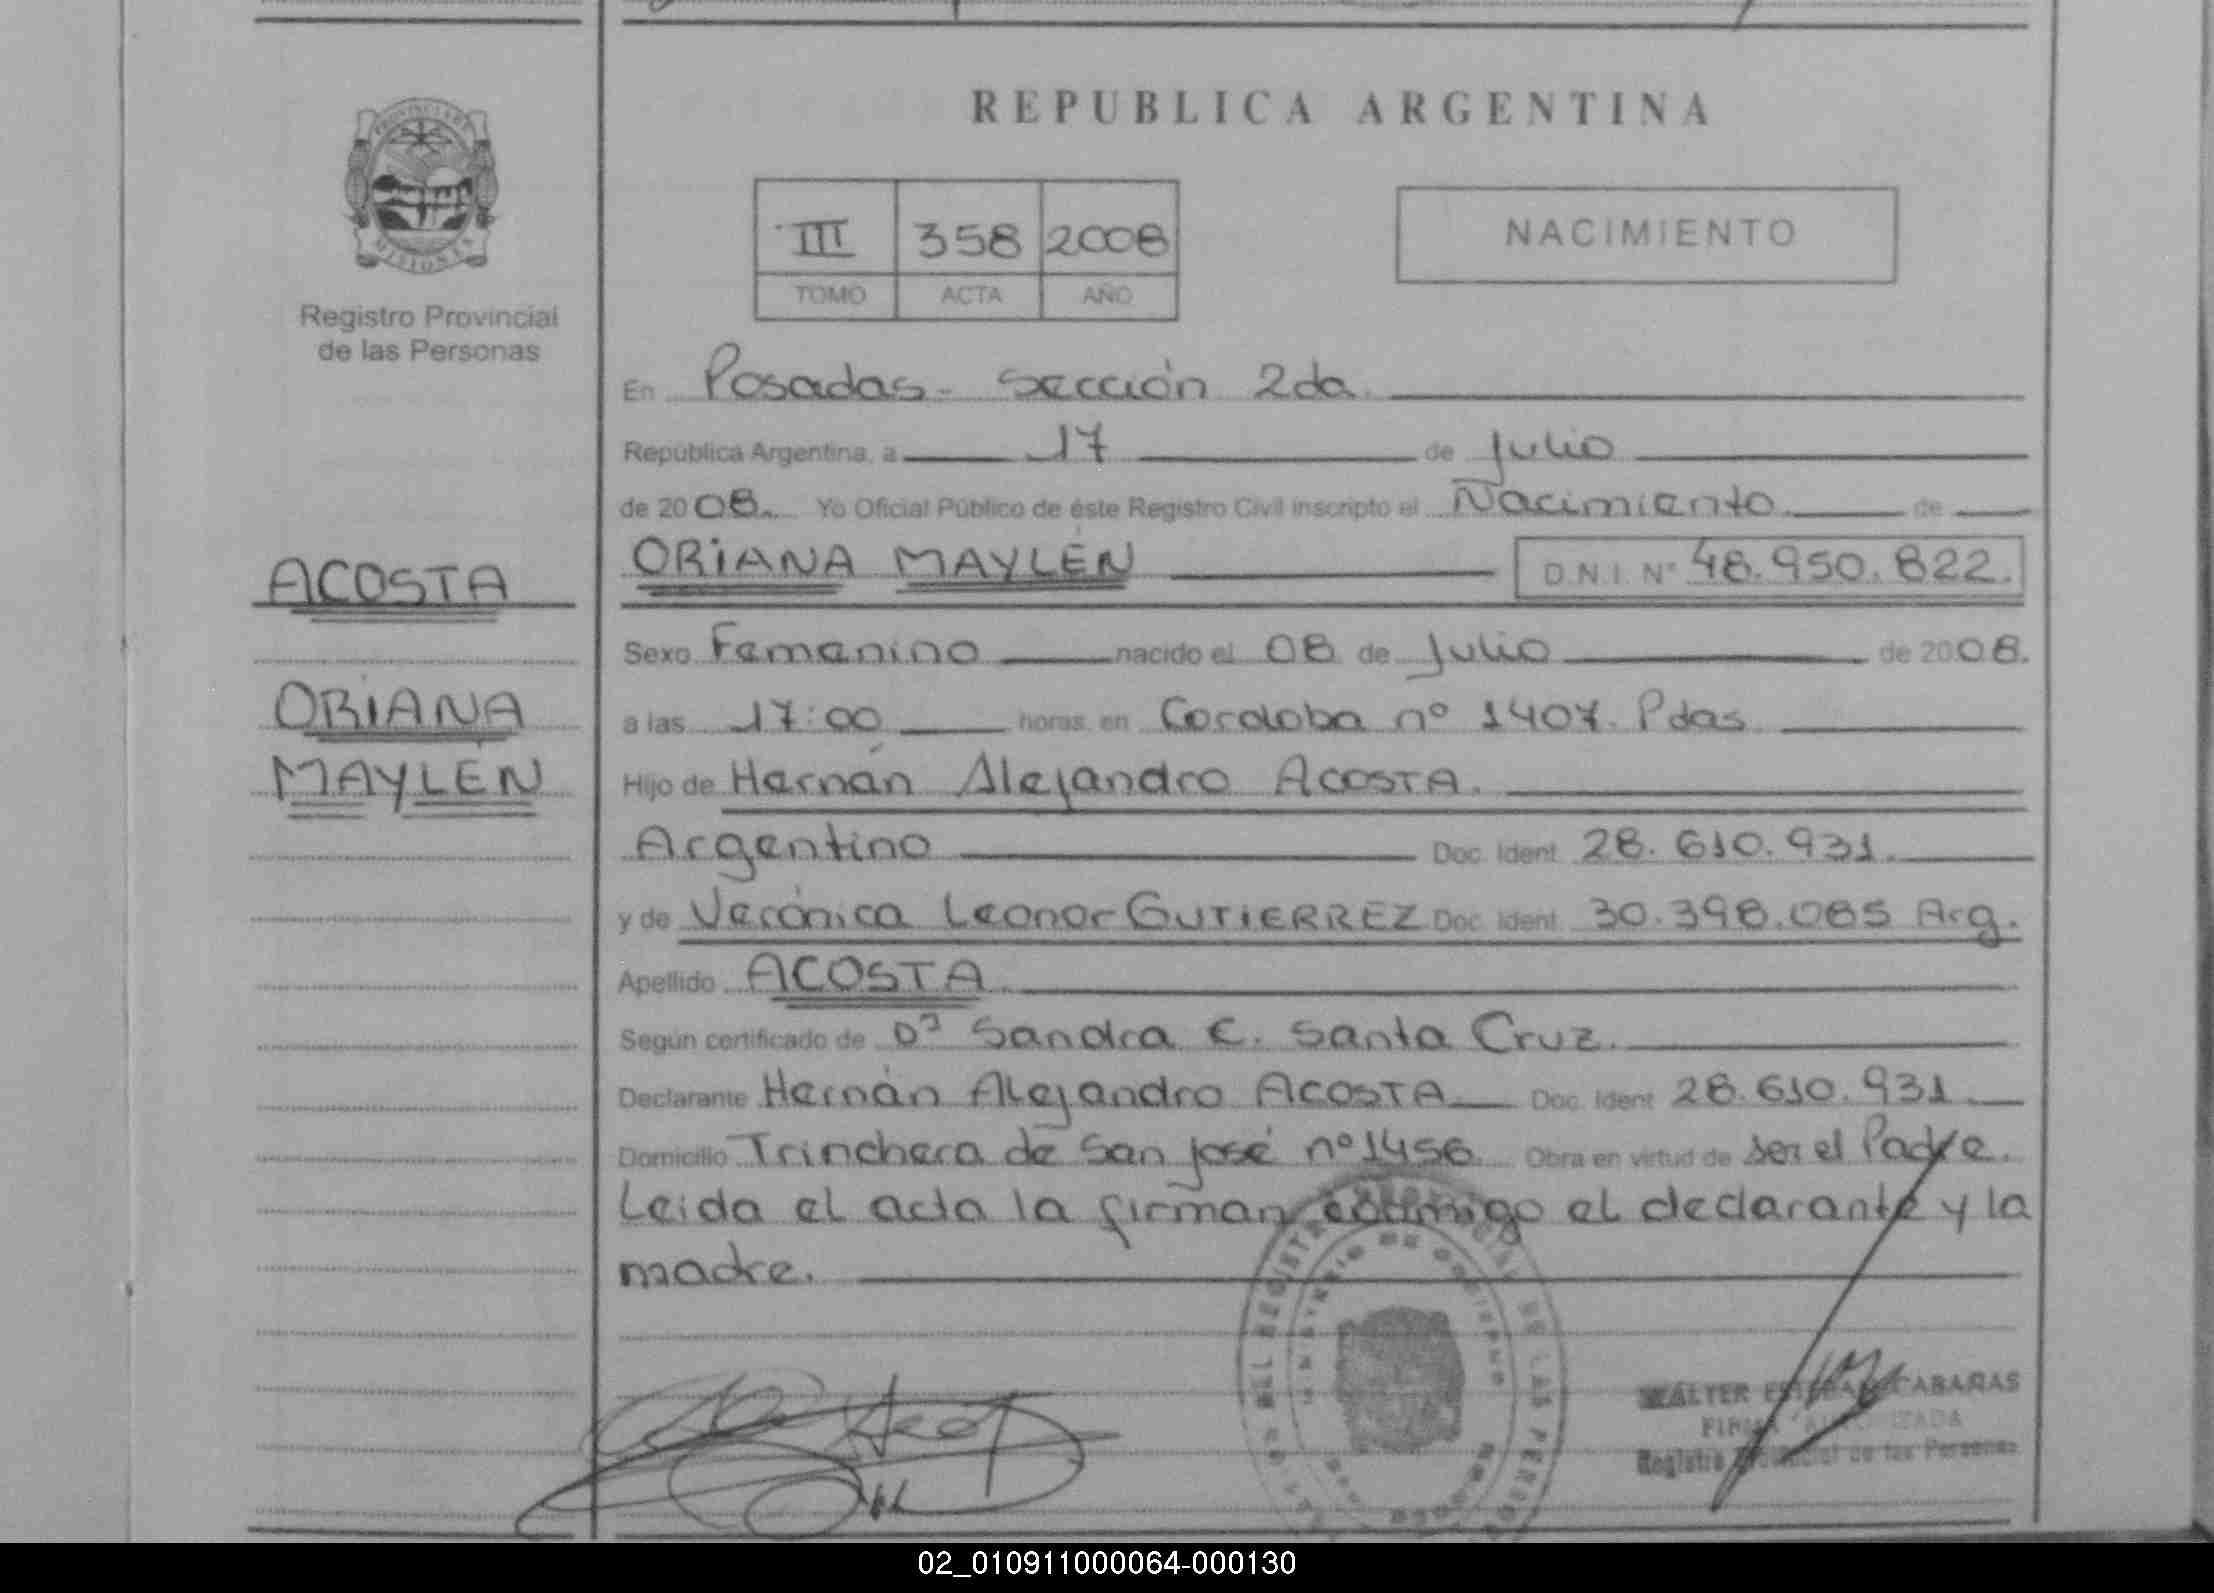 REPUBLICA ARGENTINA
PROVINCIA DE MISIONES
Registro Provincial
de las Personas
III 358 2008
TOMO ACTA AÑO
NACIMIENTO
En Posadas - Sección 2da.
República Argentina, a 17 de Julio
de 2008. Yo Oficial Público de éste Registro Civil inscripto el Nacimiento de
ACOSTA
ORIANA MAYLÉN D.N.I. Nº 48.950.822.
Sexo Femenino nacido el 08 de Julio de 2008.
ORIANA
a las 17:00 horas, en Cordoba nº 1407. Pdas
MAYLÉN
Hijo de Hernán Alejandro ACOSTA.
Argentino Doc. Ident. 28.610.931.
y de Verónica Leonor GUTIERREZ Doc. Ident. 30.398.085 Arg.
Apellido ACOSTA.
Según certificado de Dª Sandra E. Santa Cruz.
Declarante Hernán Alejandro ACOSTA Doc. Ident. 28.610.931
Domicilio Trinchera de San José nº 1456. Obra en virtud de ser el Padre.
Leida el acta la firman conmigo el declarante y la
madre.
WALTER ESTEBAN CABARAS
FIRMA AUTORIZADA
Registro Provincial de las Personas
02_010911000064-000130